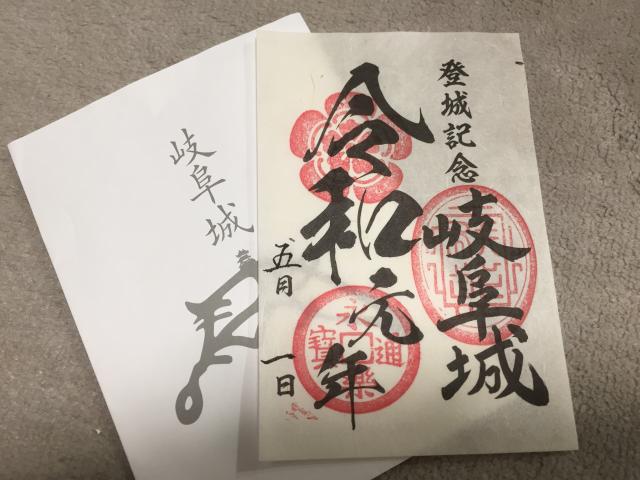 登城記念
岐阜城
令和元年
五月一日
永樂通寳
岐阜城